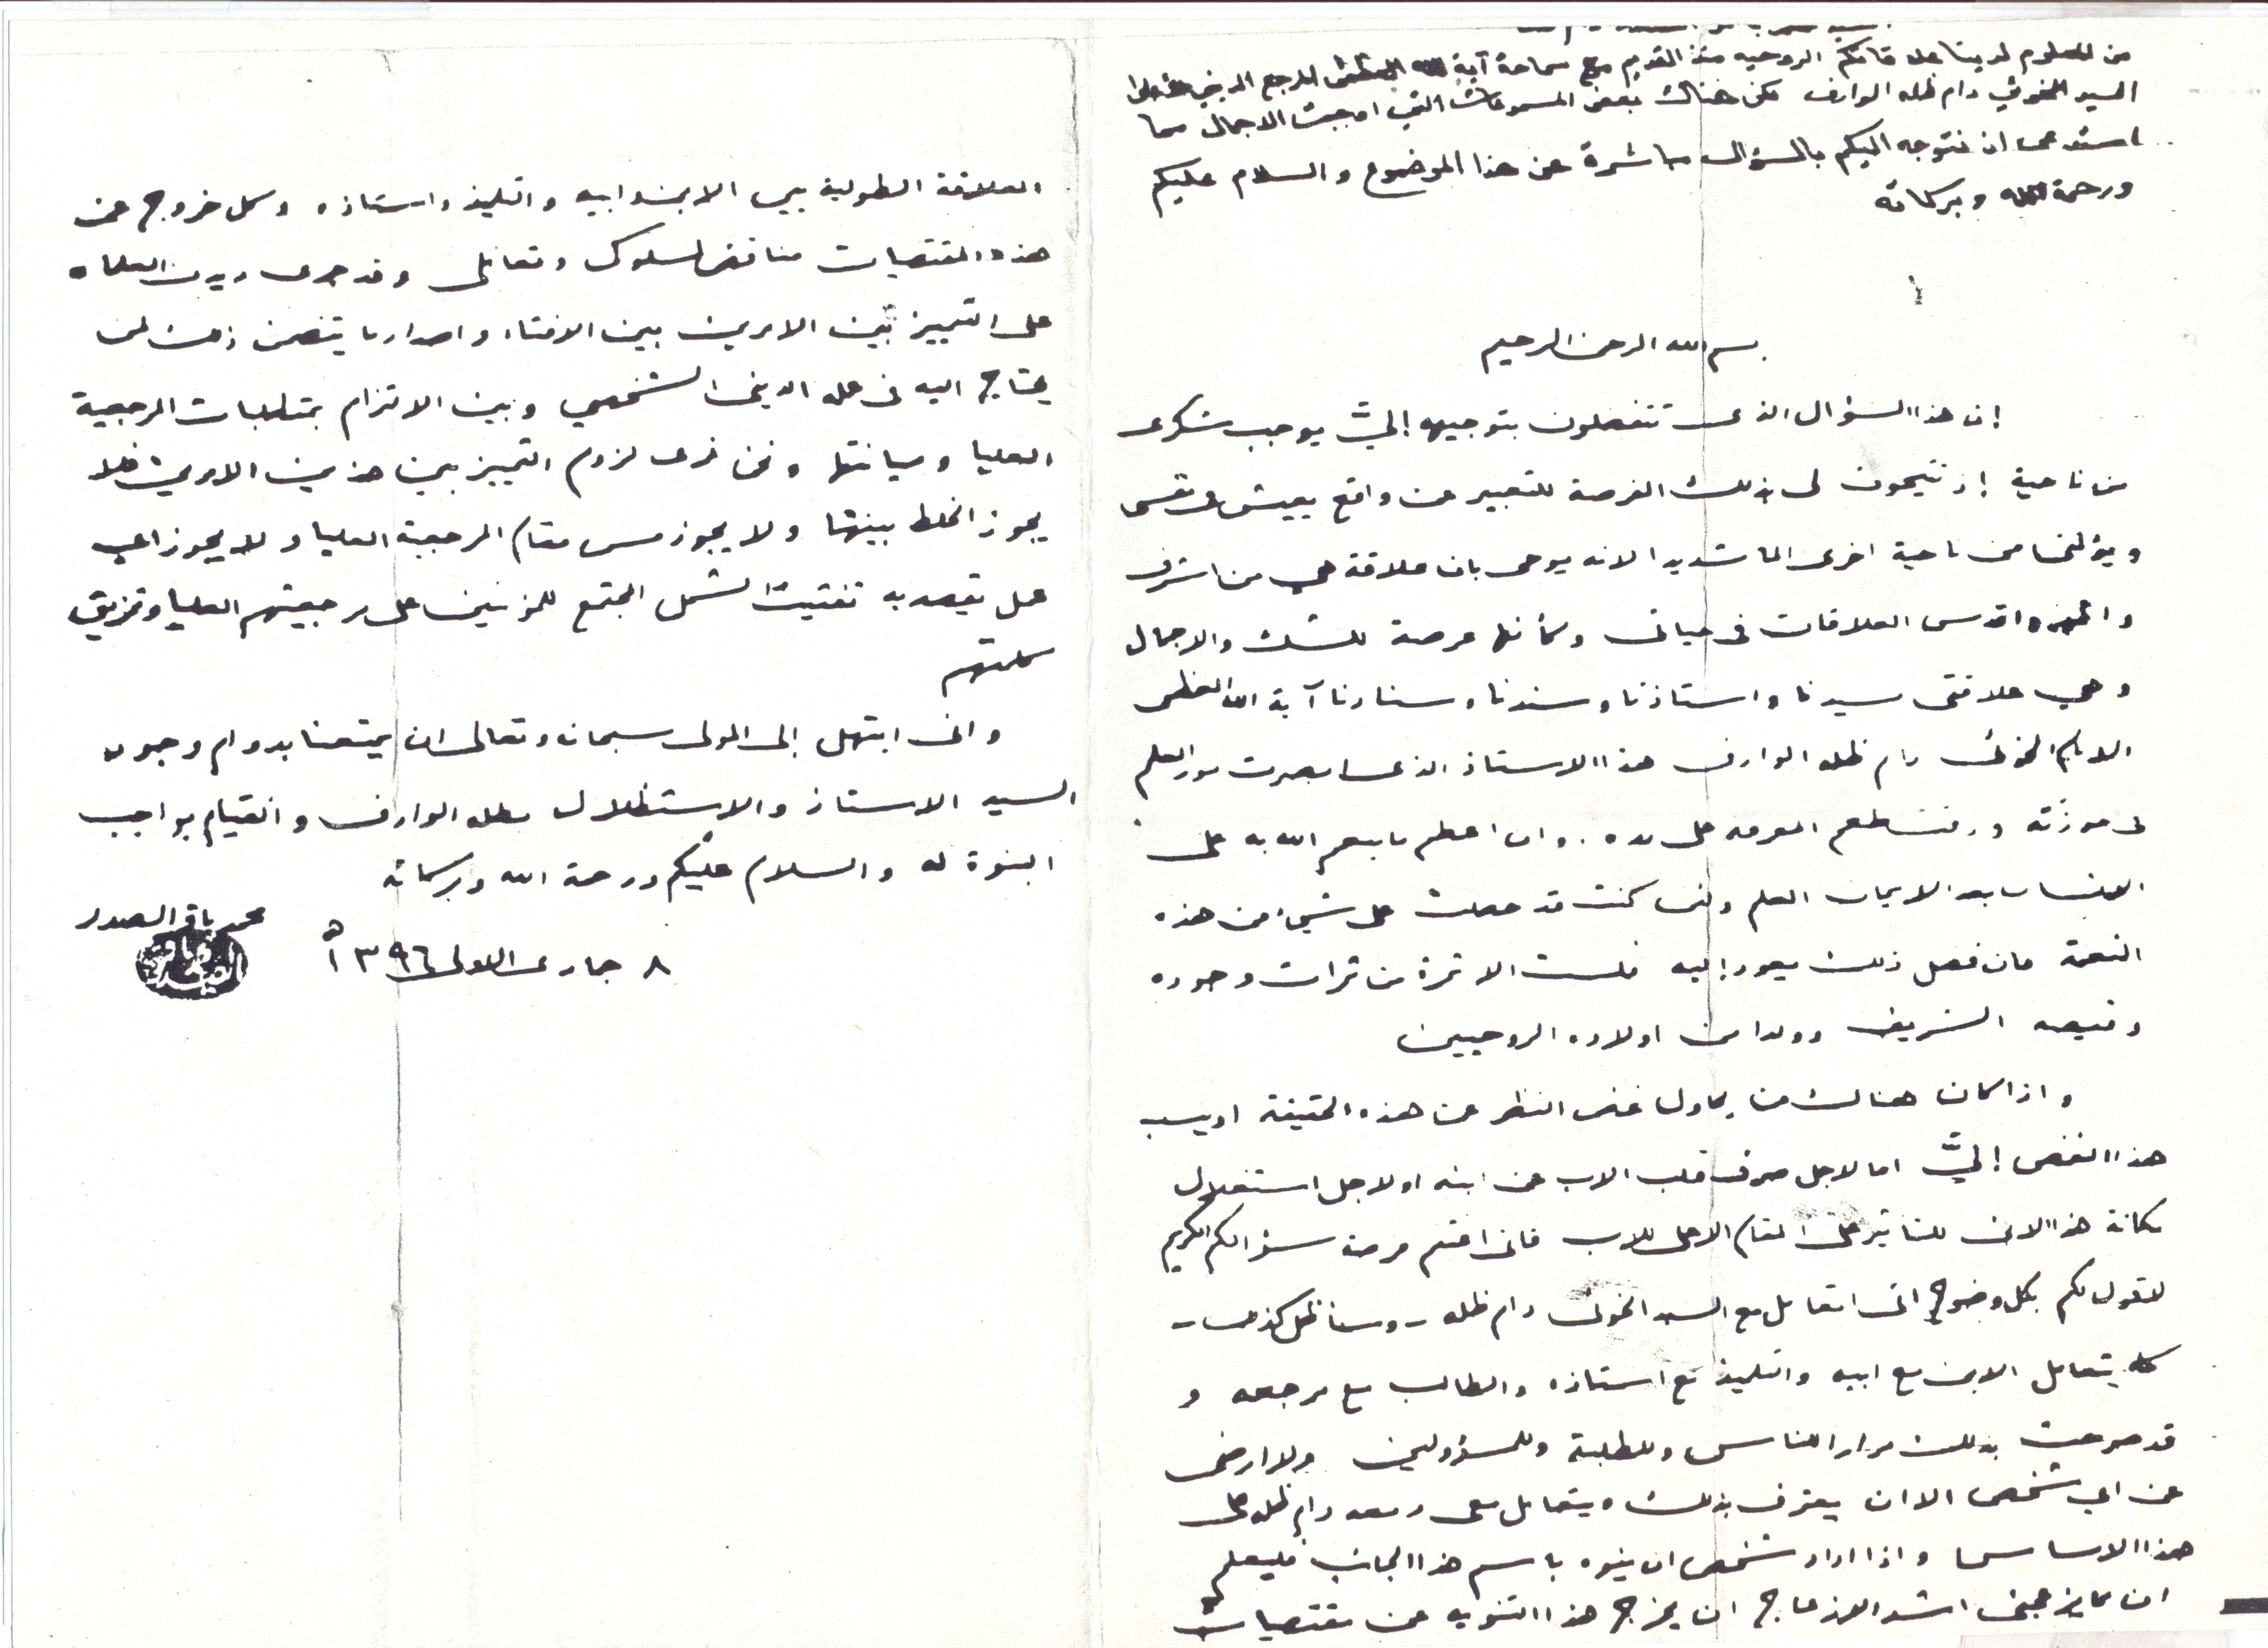 من المعلوم لدينا علاقتكم الروحيه منذ القديم مع سماحة آية الله العظمى المرجع الديني
السيد الخوئي دام ظله الوارف لكن هناك بعض المسموعات التي اوجبت الاجمال مما
استدعى ان نتوجه اليكم بالسؤال مباشرة عن هذا الموضوع والسلام عليكم
ورحمة الله وبركاته
بسم الله الرحمن الرحيم
إن هذا السؤال الذي تتفضلون بتوجيهه إليّ يوجب شكري
من ناحية إذ تتيحون لي بذلك الفرصة للتعبير عن واقع يعيش في نفسي
ويؤلمني من ناحية اخرى الما شديدا لانه يوحي بان علاقة هي من اشرف
واطهر واقدس العلاقات في حياتي وكأنها عرضة للشك والاجمال
وهي علاقتي بسيدنا واستاذنا وسندنا وسنادنا آية الله العظمى
الامام الخوئي دام ظله الوارف هذا الاستاذ الذي ابصرت نور العلم
في حوزته وذقت طعم المعرفه على يده. وان اعظم ما ينعم الله به على
الانسان بعد الايمان العلم ولئن كنت قد حصلت على شيء من هذه
النعمة فان فضل ذلك يعود إليه فلست الا ثمرة من ثمرات وجوده
وفيضه الشريف وولدا من اولاده الروحيين
واذا كان هنالك من يحاول غض النظر عن هذه الحقيقة او ينسب
هذا الغض إليّ اما لاجل صرف قلب الاب عن ابنه او لاجل استغلال
مكانة هذا الابن للتأثير على المقام الاعلى للاب فاني اغتنم فرصة سؤالكم الكريم
لاقول لكم بكل وضوح اني اتعامل مع السيد الخوئي دام ظله - وسأظل كذلك -
كما يتعامل الابن مع ابيه والتلميذ مع استاذه والطالب مع مرجعه و
قد صرحت بذلك مرارا للناس وللطلبة وللمسؤولين ولا ارضى
عن اي شخص الا ان يعترف بذلك ويتعامل معي ومعه دام ظله على
هذا الاساس واذا اراد شخص ان ينوه باسم هذا الجانب فليعلم
ان مما يزعجني اشد الازعاج ان يخرج هذا التنويه عن مقتضيات
العلاقة الطولية بين الابن وابيه والتلميذ واستاذه وكل خروج عن
هذه المقتضيات مناقض لسلوكي وتعاملي وقد جرى ديدن العلماء
على التمييز بين الامرين بين الافتاء واصدار ما يتضمن ذلك لمن
يحتاج اليه في عمله الديني الشخصي وبين الالتزام بمتطلبات المرجعية
العليا وصيانتها ونحن نرى لزوم التمييز بين هذين الامرين فلا
يجوز الخلط بينهما ولا يجوز مس مقام المرجعية العليا ولا يجوز اي
عمل يقصد به تفتيت الشمل المجتمع للمؤمنين على مرجعيتهم العليا وتمزيق
كلمتهم
واني ابتهل إلى المولى سبحانه وتعالى ان يمتعنا بدوام وجود
السيد الاستاذ والاستظلال بظله الوارف والقيام بواجب
البنوة له والسلام عليكم ورحمة الله وبركاته
محمد باقر الصدر
٨ جمادى الاولى ١٣٩٦ هـ